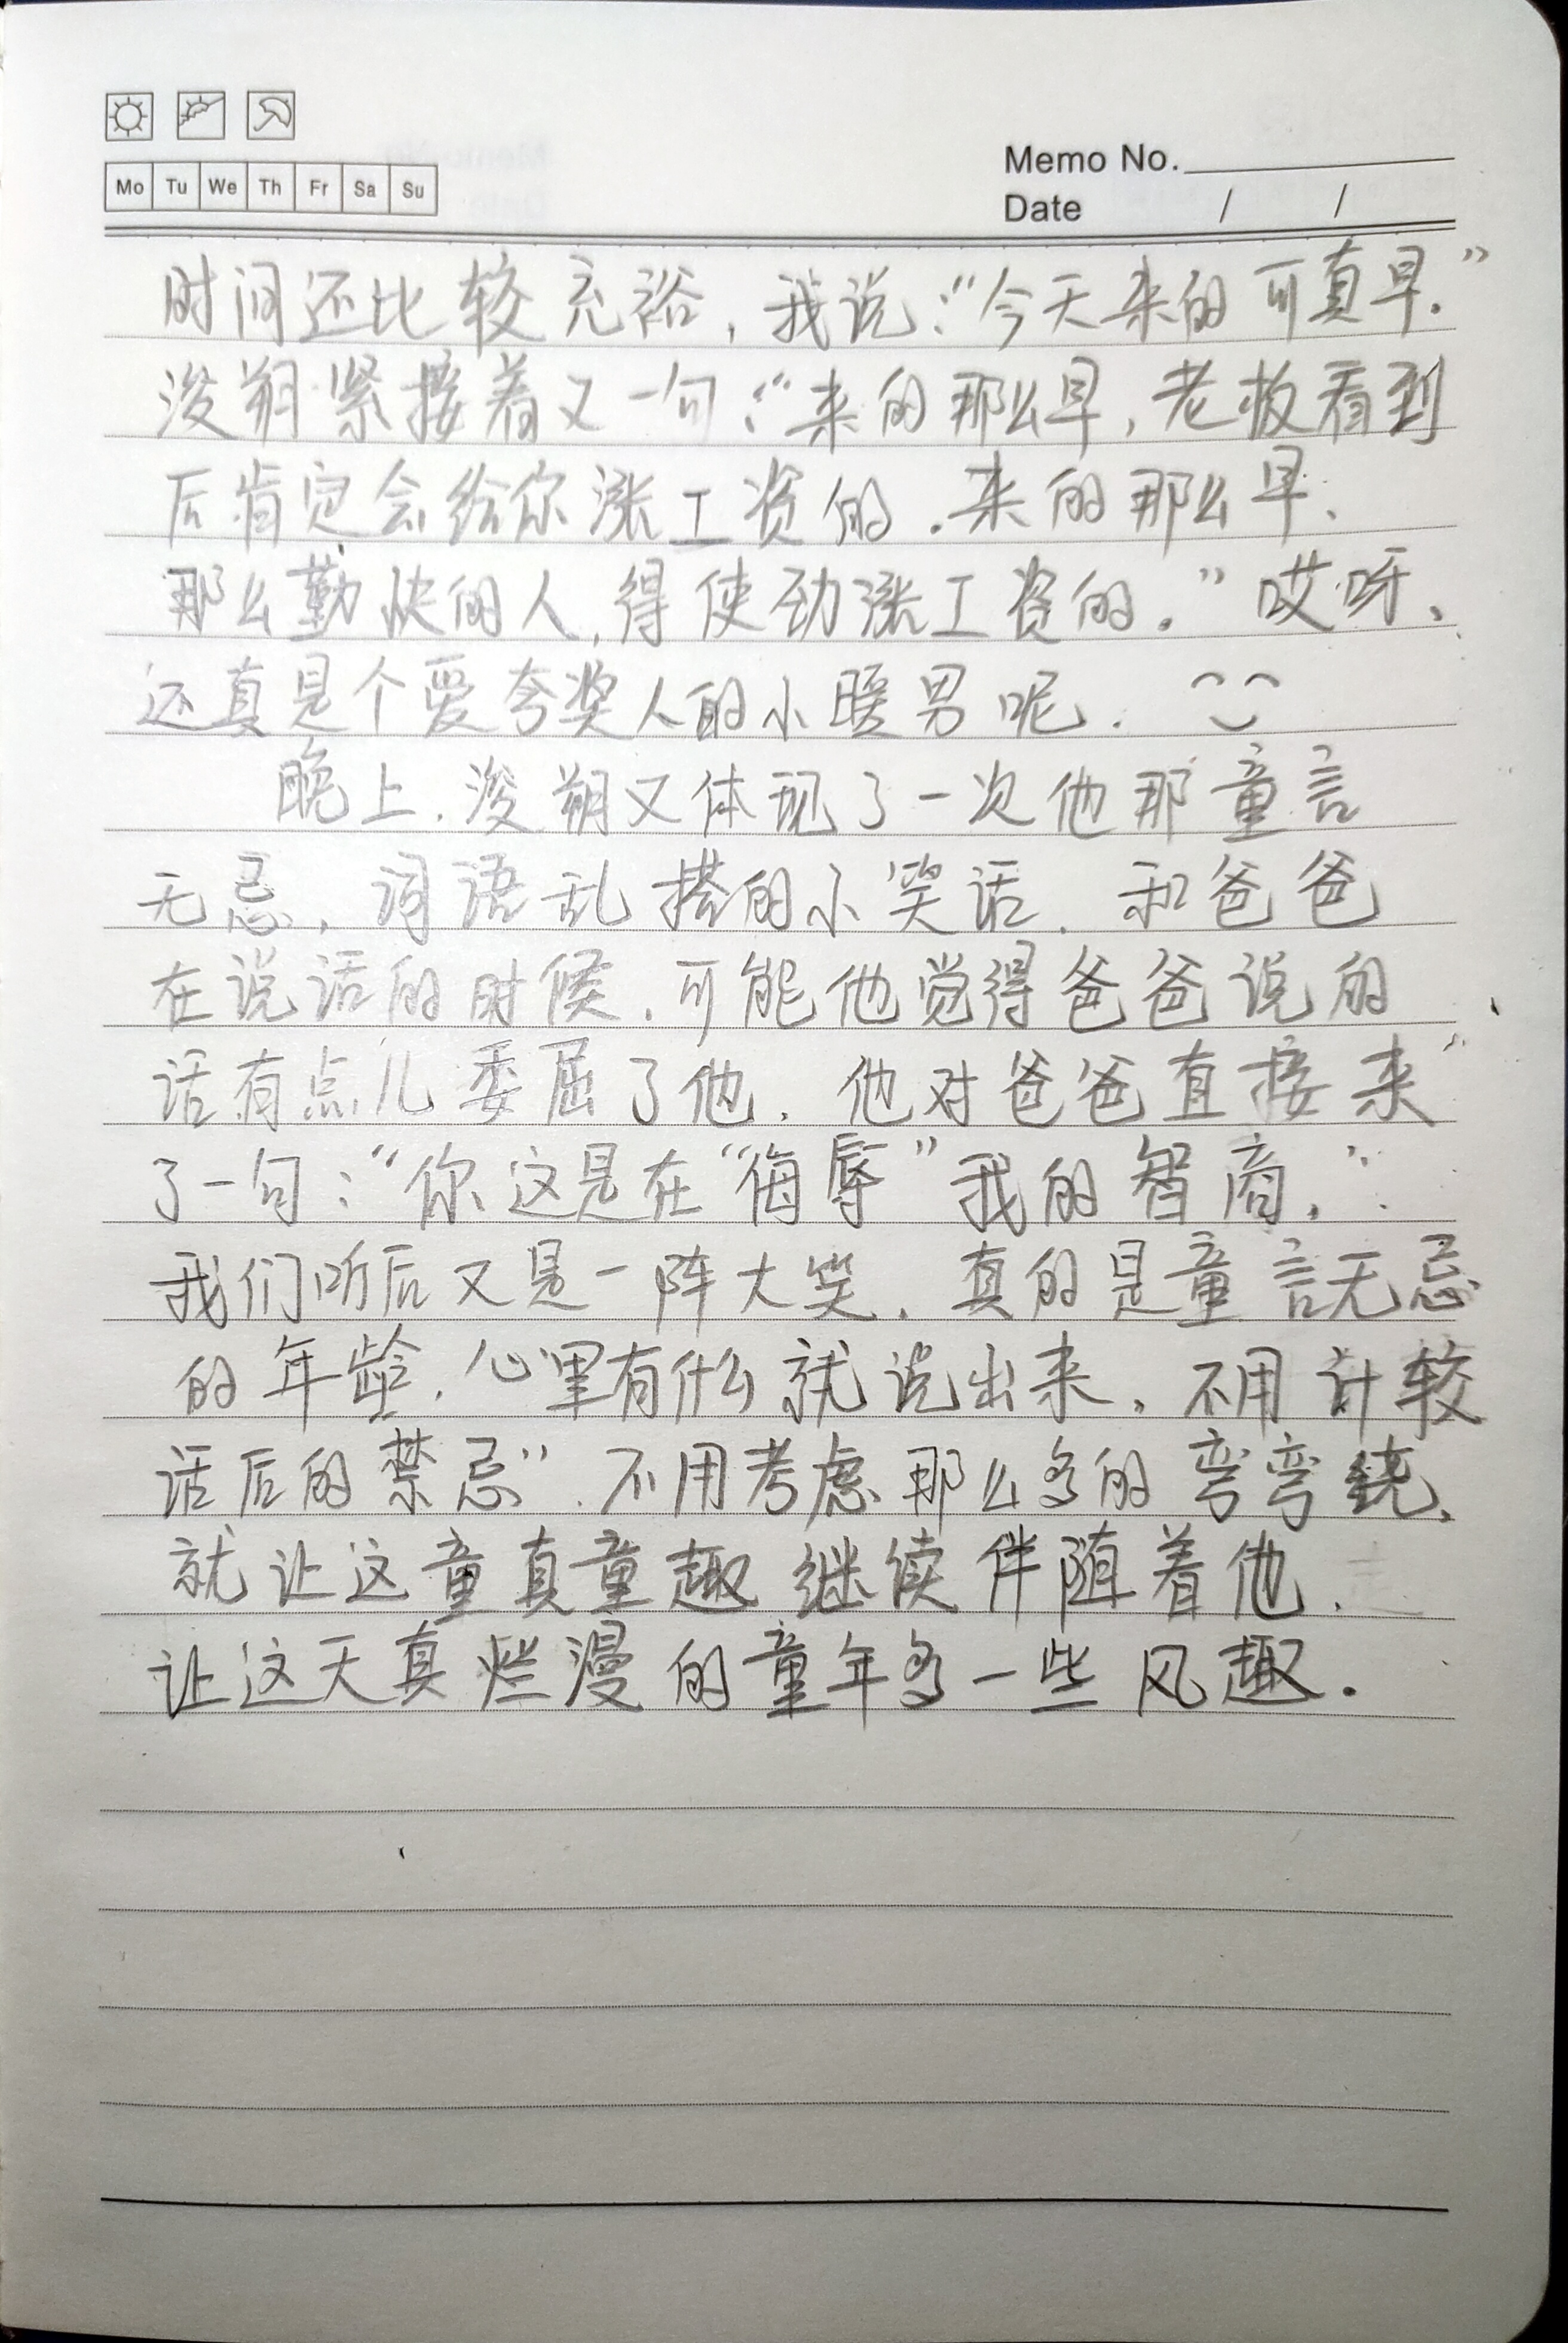 Mo Tu We Th Fr Sa Su
Memo No.
Date / /
时间还比较充裕，我说：“今天来的可真早.”
浚朔紧接着又一句：“来的那么早，老板看到
后肯定会给你涨工资的.来的那么早、
那么勤快的人,得使劲涨工资的.”哎呀、
还真是个爱夸奖人的小暖男呢.
晚上.浚朔又体现了一次他那童言
无忌，词语乱搭的小笑话.和爸爸
在说话的时候.可能他觉得爸爸说的
话有点儿委屈了他.他对爸爸直接来
了一句：“你这是在“侮辱”我的智商.”
我们听后又是一阵大笑.真的是童言无忌
的年龄.心里有什么就说出来.不用计较
话后的禁忌”.不用考虑那么多的弯弯绕.
就让这童真童趣继续伴随着他.
让这天真烂漫的童年多一些风趣.